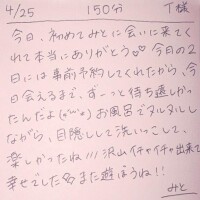 4/25 150分 T様
今日、初めてみとに会いに来てく
れて本当にありがとう♡♡ 今日の2
日には事前予約してくれたから、今
日会えるまで、ずーっと待ち遠しかっ
たんだよ(o'ω'o) お風呂でヌルヌルし
ながら、目隠しして洗いっこして、
楽しかったね!!! 沢山イチャイチャ出来て
幸せでした また遊ぼうね!!
みと